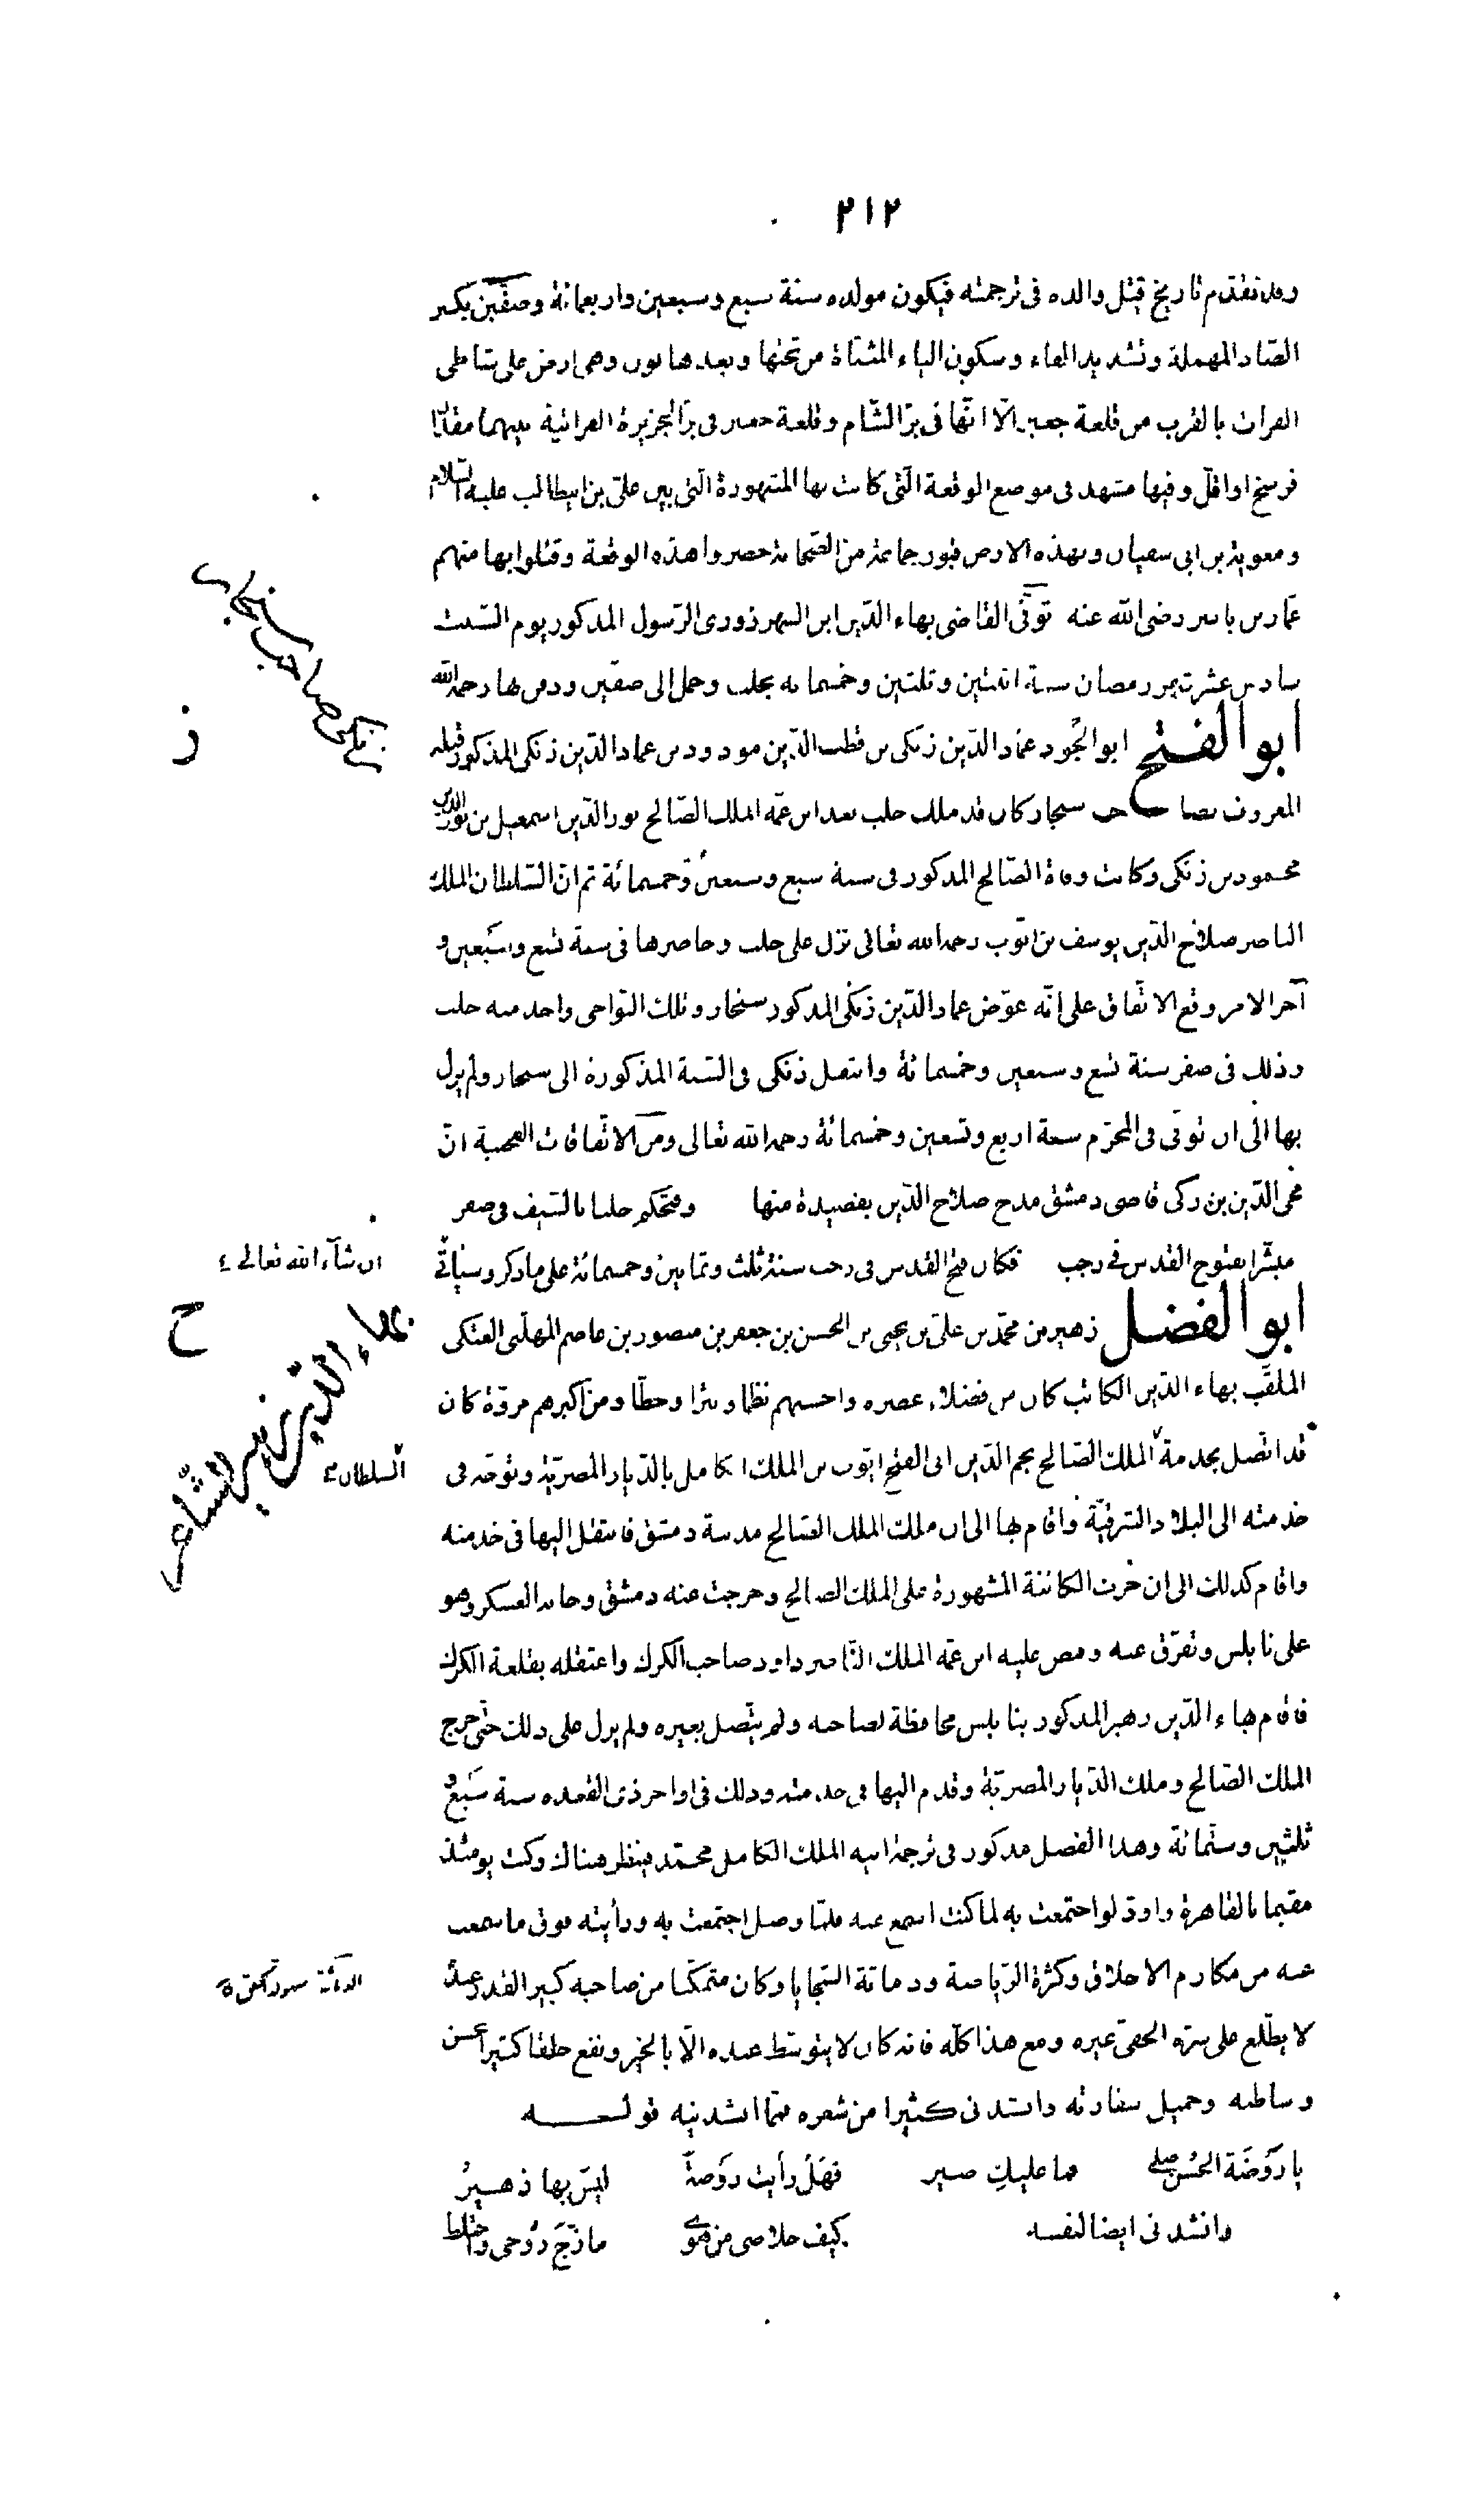 ٢١٢
وقد تقدم تاريخ قتل والده في ترجمته فيكون مولده سنة سبع وسبعين واربعمائة وصفّين بكسر
الصّاد المهملة وتشديد الفاء وسكون الياء المثنّاة من تحتها وبعدها نون وهي ارض على شاطى
الفرات بالقرب من قلعة جعبر الّا انّها في برّ الشّام وقلعة جعبر في برّ الجزيرة الفراتية بينهما مقدار
فرسخ او اقلّ وفيها مشهد في موضع الوقعة الّتي كانت بها المشهورة الّتي بين علىّ بن ابيطالب عليه السّلام
ومعوية بن ابي سفيان وبهذه الارض قبور جماعة من الصّحابة حضروا هذه الوقعة وقتلوا بها منهم
عمّار بن ياسر رضى الله عنه توفّى القاضى بهاء الدّين ابن الشهرزورى الرّسول المذكور يوم السّبت
سادس عشر شهر رمضان سنة اثنتين وثلثين وخمسمائه بحلب وحمل الى صفّين ودفن بها رحمه الله
ابو الفتح ابو الجُود عماد الدّين زنكى بن قطب الدّين مودود بن عماد الدّين زنكى المذكور قبله
المعروف بصاحب سنجار كان قد ملك حلب بعد ابن عمّه الملك الصّالح نور الدّين اسمعيل بن نور الدين
محمود بن زنكى وكانت وفاة الصّالح المذكور في سنة سبع وسبعين وخمسمائة ثم انّ السّلطان الملك
الناصر صلاح الدّين يوسف بن ايّوب رحمه الله تعالى نزل على حلب وحاصرها في سنة تسع وسبعين و
آخر الامر وقع الاتّفاق على انّه عوّض عماد الدّين زنكى المذكور سنجار وتلك النّواحى واخذ منه حلب
وذلك في صفر سنة تسع وسبعين وخمسمائة وانتقل زنكى في السّنة المذكورة الى سنجار ولم يزل
بها الى ان توفّى في المحرّم سنة اربع وتسعين وخمسمائة رحمه الله تعالى ومن الاتّفاقات العجيبة انّ
محى الدّين بن زكى قاضى دمشق مدح صلاح الدّين بقصيدة منها وفتحكم حلبا بالسّيف في صفر
مبشّر بفتوح القدس في رجب فكان فتح القدس في رجب سنة ثلث وثمانين وخمسمائة على ما ذكر وسيأتى
ان شآء الله تعالى
ابو الفضل زهير بن محمّد بن علىّ بن يحيى بن الحسن بن جعفر بن منصور بن عاصم المهلّبى العتكى
الملقّب بهاء الدّين الكاتب كان من فضلاء عصره واحسنهم نظما ونثرا وخطّا ومن اكبرهم مروّة كان
قد اتّصل بخدمة الملك الصّالح نجم الدّين ابى الفتح ايّوب بن الملك الكامل بالدّيار المصريّة وتوجّه في
السلطان
خدمته الى البلاد الشرقيّة واقام بها الى ان ملك الملك الصّالح مدينة دمشق فانتقل اليها في خدمته
واقام كذلك الى ان جرت الكائنة المشهورة على الملك الصالح وخرجت عنه دمشق وخانه العسكر وهو
على نابلس وتفرّق عنه وقبض عليه ابن عمّه الملك النّاصر داود صاحب الكرك واعتقله بقلعة الكرك
فاقام بهاء الدّين زهير المذكور بنابلس محافظة لصاحبه ولم يتّصل بغيره ولم يزل على ذلك حتّى خرج
الملك الصّالح وملك الدّيار المصريّة وقدم اليها في خدمته وذلك في اواخر ذى القعده سنة سَبع و
ثلثين وستّمائة وهذا الفصل مذكور في ترجمة ابيه الملك الكامل محمّد فينظر هناك وكنت يومئذ
مقيما بالقاهرة واودّ لو اجتمعت به لما كنت اسمع عنه فلمّا وصل اجتمعت به ورأيته فوق ما سمعت
عنه من مكارم الاخلاق وكثرة الرّياضة ودماثة السّجايا وكان متمكّنا من صاحبه كبير القدر عنده
لا يطّلع على سرّه الخفىّ غيره ومع هذا كلّه فانه كان لا يتوسّط عنده الّا بالخير ونفع خلقا كثيرا بحسن
وساطته وجميل سفارته وانشدنى كثيرا من شعره فممّا انشدنيه قولـــه
يا رَوضَة الحُسن صلى فما عليكِ ضير فهَل رأيت رَوضةً ليسَ بها زهَيرُ
وانشدنى ايضا لنفسه كيف خلاصى من هوى مازَجَ رُوحى واختلط
زنكى صاحب سنجار
ز
ح
بهاء الدّين زهير الشّاعر